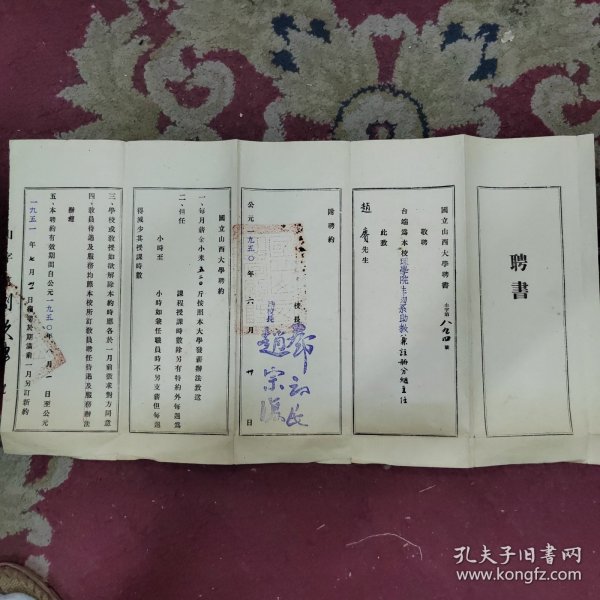 聘書
國立山西大學聘書
敬聘
台端為本校醫學院生物系助教兼註册分組主任
此致
趙 先生
附聘約
校長 鄧初民
副校長 趙宗復
公元一九五〇年六月廿日
國立山西大學聘約
一、每月薪金小米五二〇斤按照本大學發薪辦法致送
二、担任 課程授課時數除另有特約外每週爲
小時至 小時如兼任職員時不另支薪但每週
得減少其授課時數
三、學校或教授如欲解除本約時應各於一月前徵求對方同意
四、教員待遇及服務均照本校所訂教員聘任待遇及服務辦法
辦理
五、本聘約有效期間自公元一九五〇年八月一日至公元
一九五一年七月卅一日種於期滿前一月另訂新約
孔夫子旧书网
www.kongfz.com